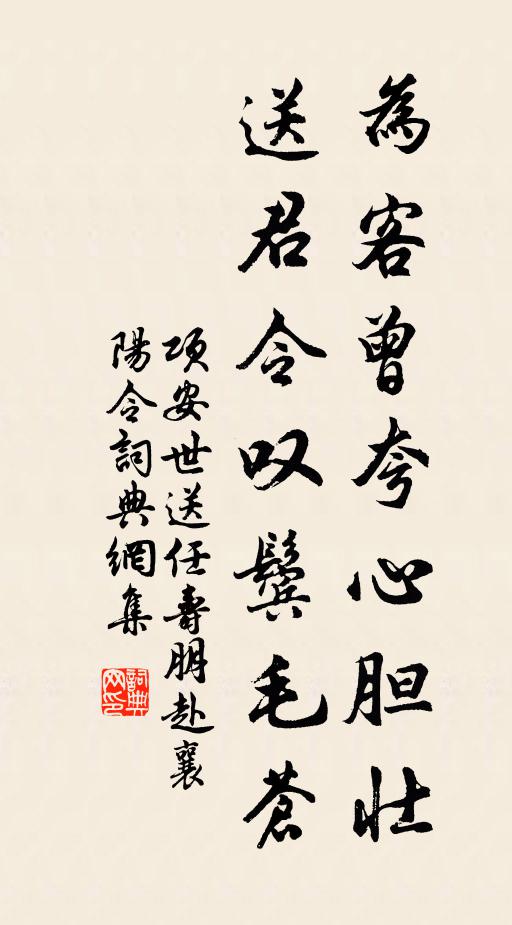 為客曾夸心胆壮
送君令叹鬓毛蒼
項安世送任壽朋赴襄
陽令詞典網集
詞典
网印